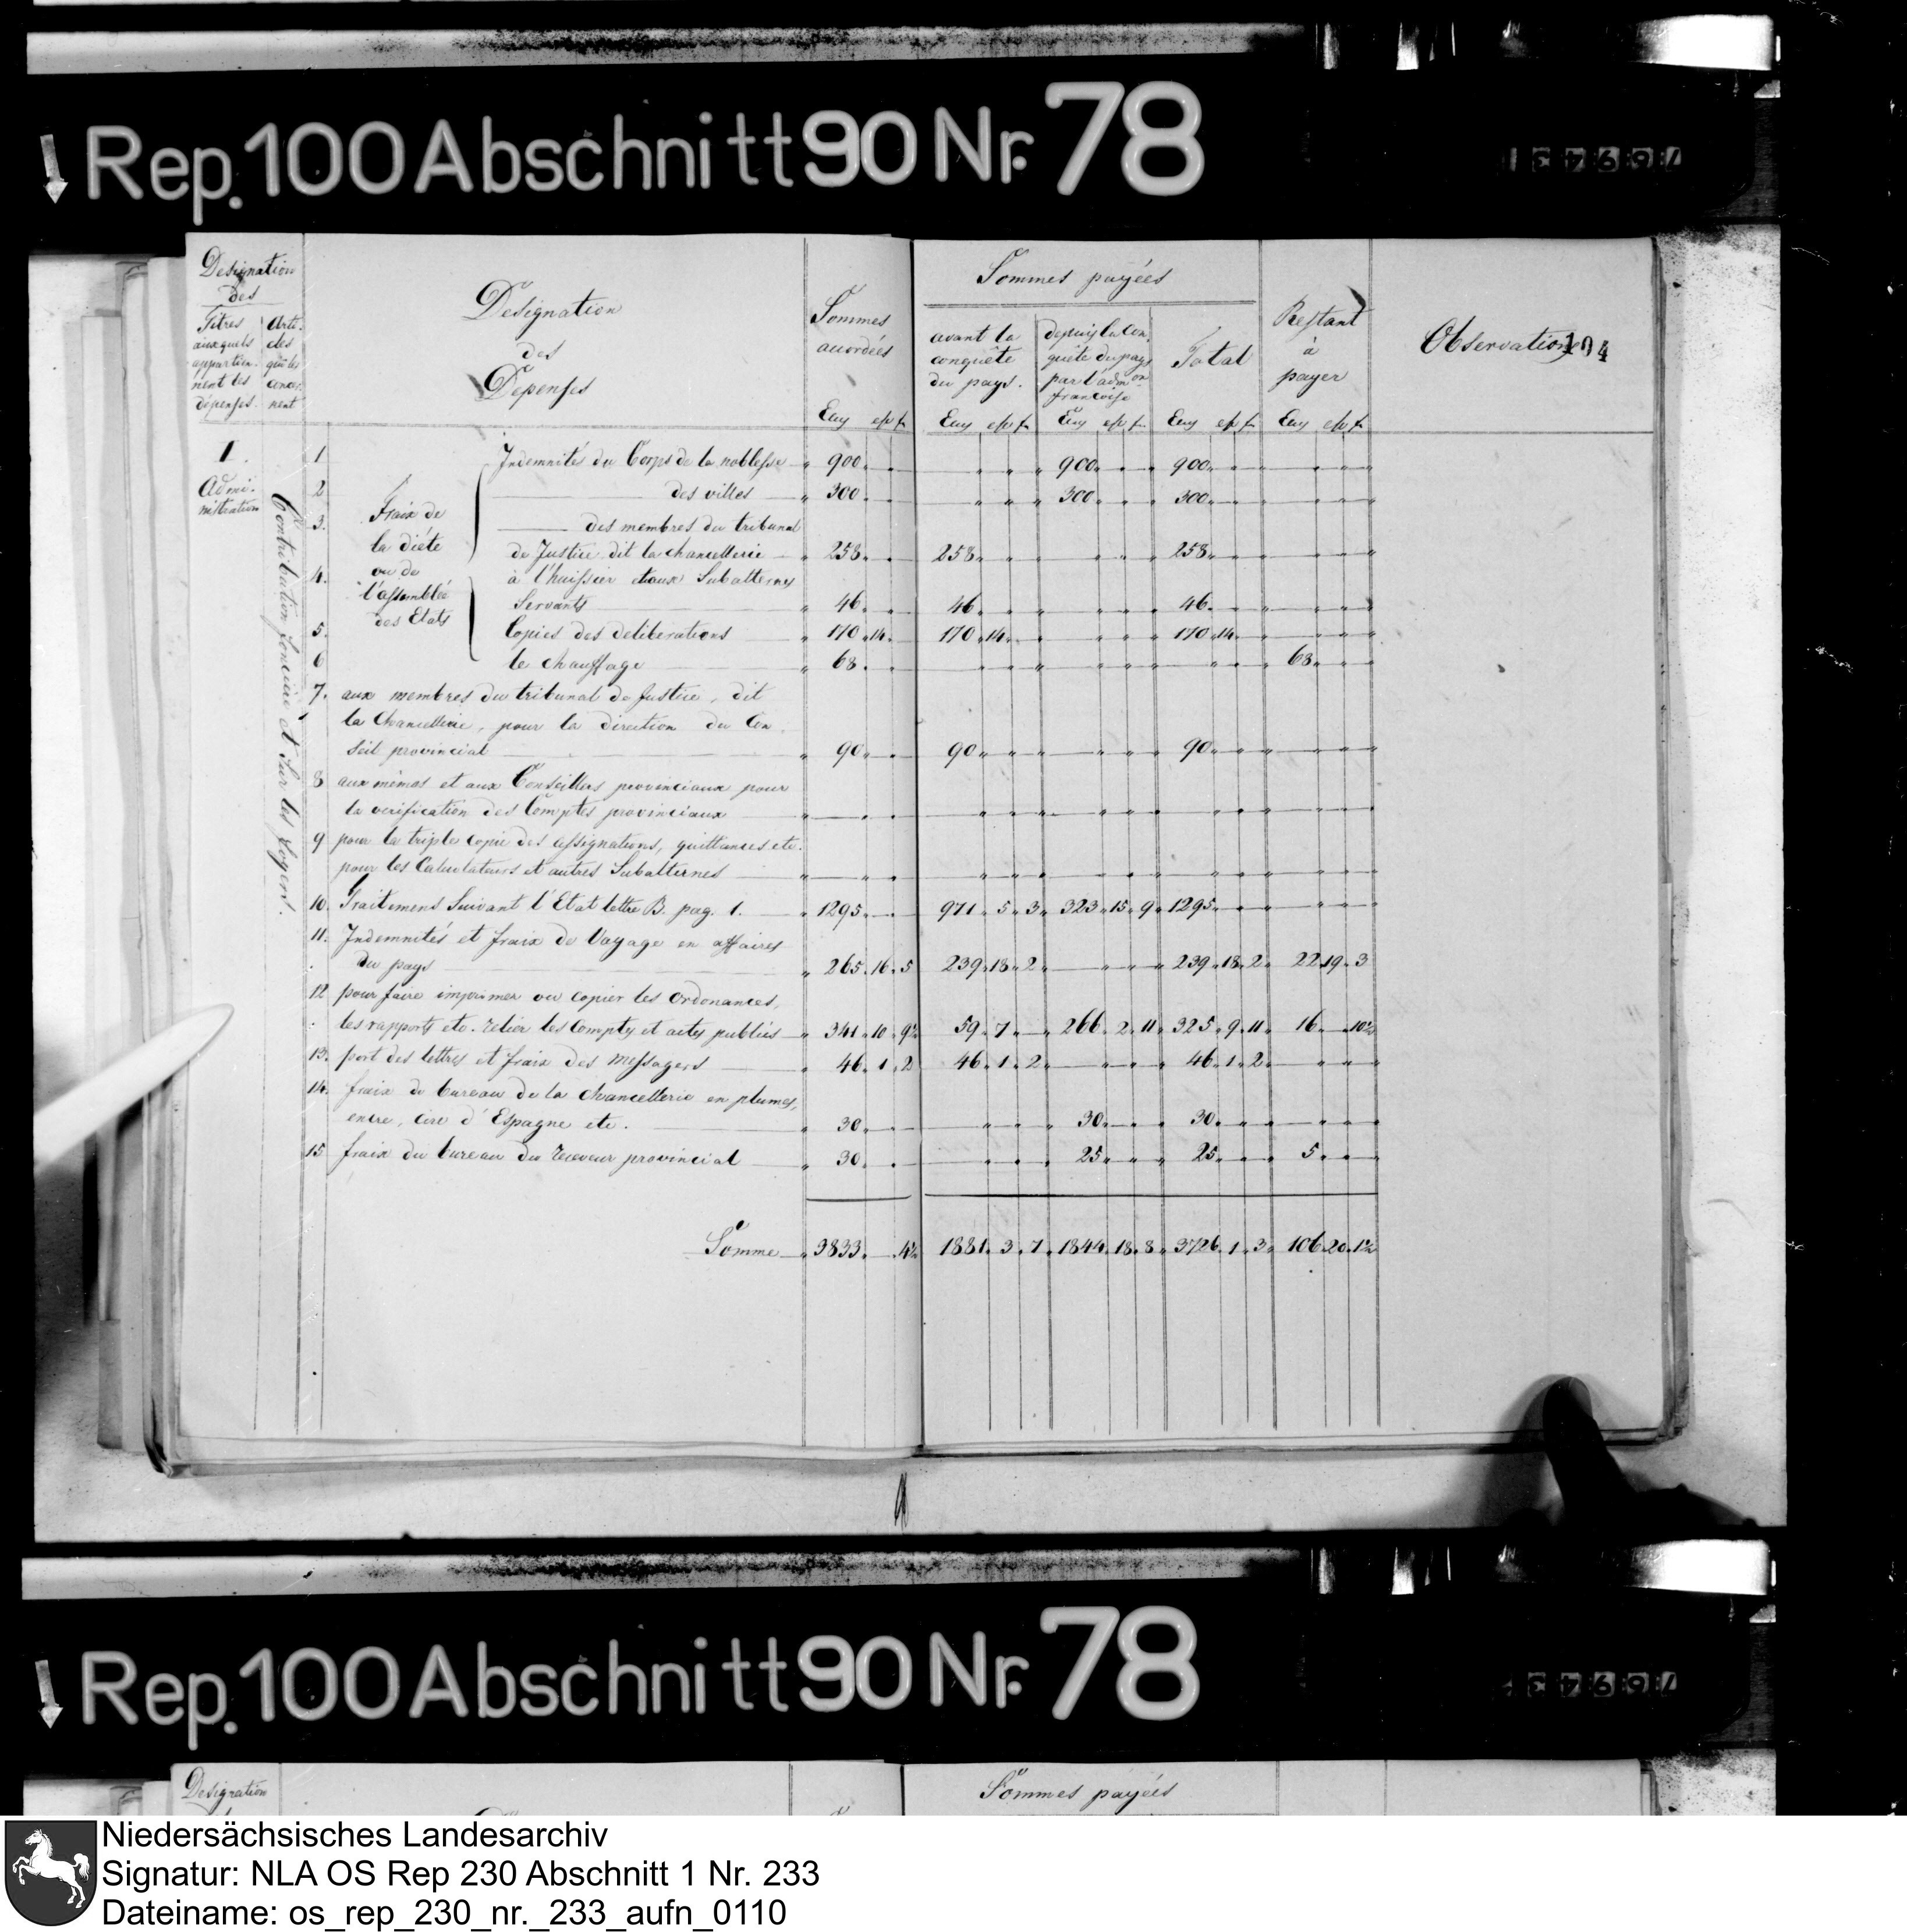 Rep. 100 Abschnitt 90 Nr. 78
Designation
des
Titres auxquels appartiennent les dépenses.
Arti-
cles
Designation
des
Dépenses
Sommes
accordées
Sommes payées
avant la
conquête
du pays.
depuis la con-
quête du pays
par l'admon
francoise
Total
Restant
à
payer
Observation
104
I.
Admi-
nistration
Contribution foncière et sur les foyers.
Fraix de
la diéte
ou de
l'assemblée
des Etats
1 Indemnités du Corps de la noblesse 900 900 900
2 des villes 300 300 300
3. des membres du tribunal
de Justice dit la chancellerie 258 258 258
4. à l'huissier et aux Subalternes
Servants 46 46 46
5. Copies des deliberations 170 14 170 14 170 14
6 le chauffage 68 68
7. aux membres du tribunal de Justice, dit
la Chancellerie, pour la direction du Con-
seil provincial 90 90 90
8 aux mêmes et aux Conseillers provinciaux pour
la verification des Comptes provinciaux
9 pour la triple copie des assignations, quittances etc.
pour les Calculateurs et autres Subalternes
10. Traitemens Suivant l'Etat lettre B. pag. 1. 1295 971 5 3 323 15 9 1295
11. Indemnités et fraix de Voyage en affaires
du pays 265 16 5 239 18 2 239 18 2 22 19 3
12 pour faire imprimer ou copier les Ordonances,
les rapports etc. relier les Comptes et actes publics 341 10 9½ 59 7 266 2 11 325 9 11 16 10½
13. port des lettres et fraix des Messagers 46 1 2 46 1 2 46 1 2
14. fraix de bureau de la Chancellerie en plumes,
encre, cire d'Espagne etc. 30 30 30
15 fraix du bureau du Receveur provincial 30 25 25 5
Somme 3833 4½ 1881 3 7 1844 18 8 3726 1 3 106 20 1½
Rep. 100 Abschnitt 90 Nr. 78
Designation
Sommes payées
Niedersächsisches Landesarchiv
Signatur: NLA OS Rep 230 Abschnitt 1 Nr. 233
Dateiname: os_rep_230_nr._233_aufn_0110